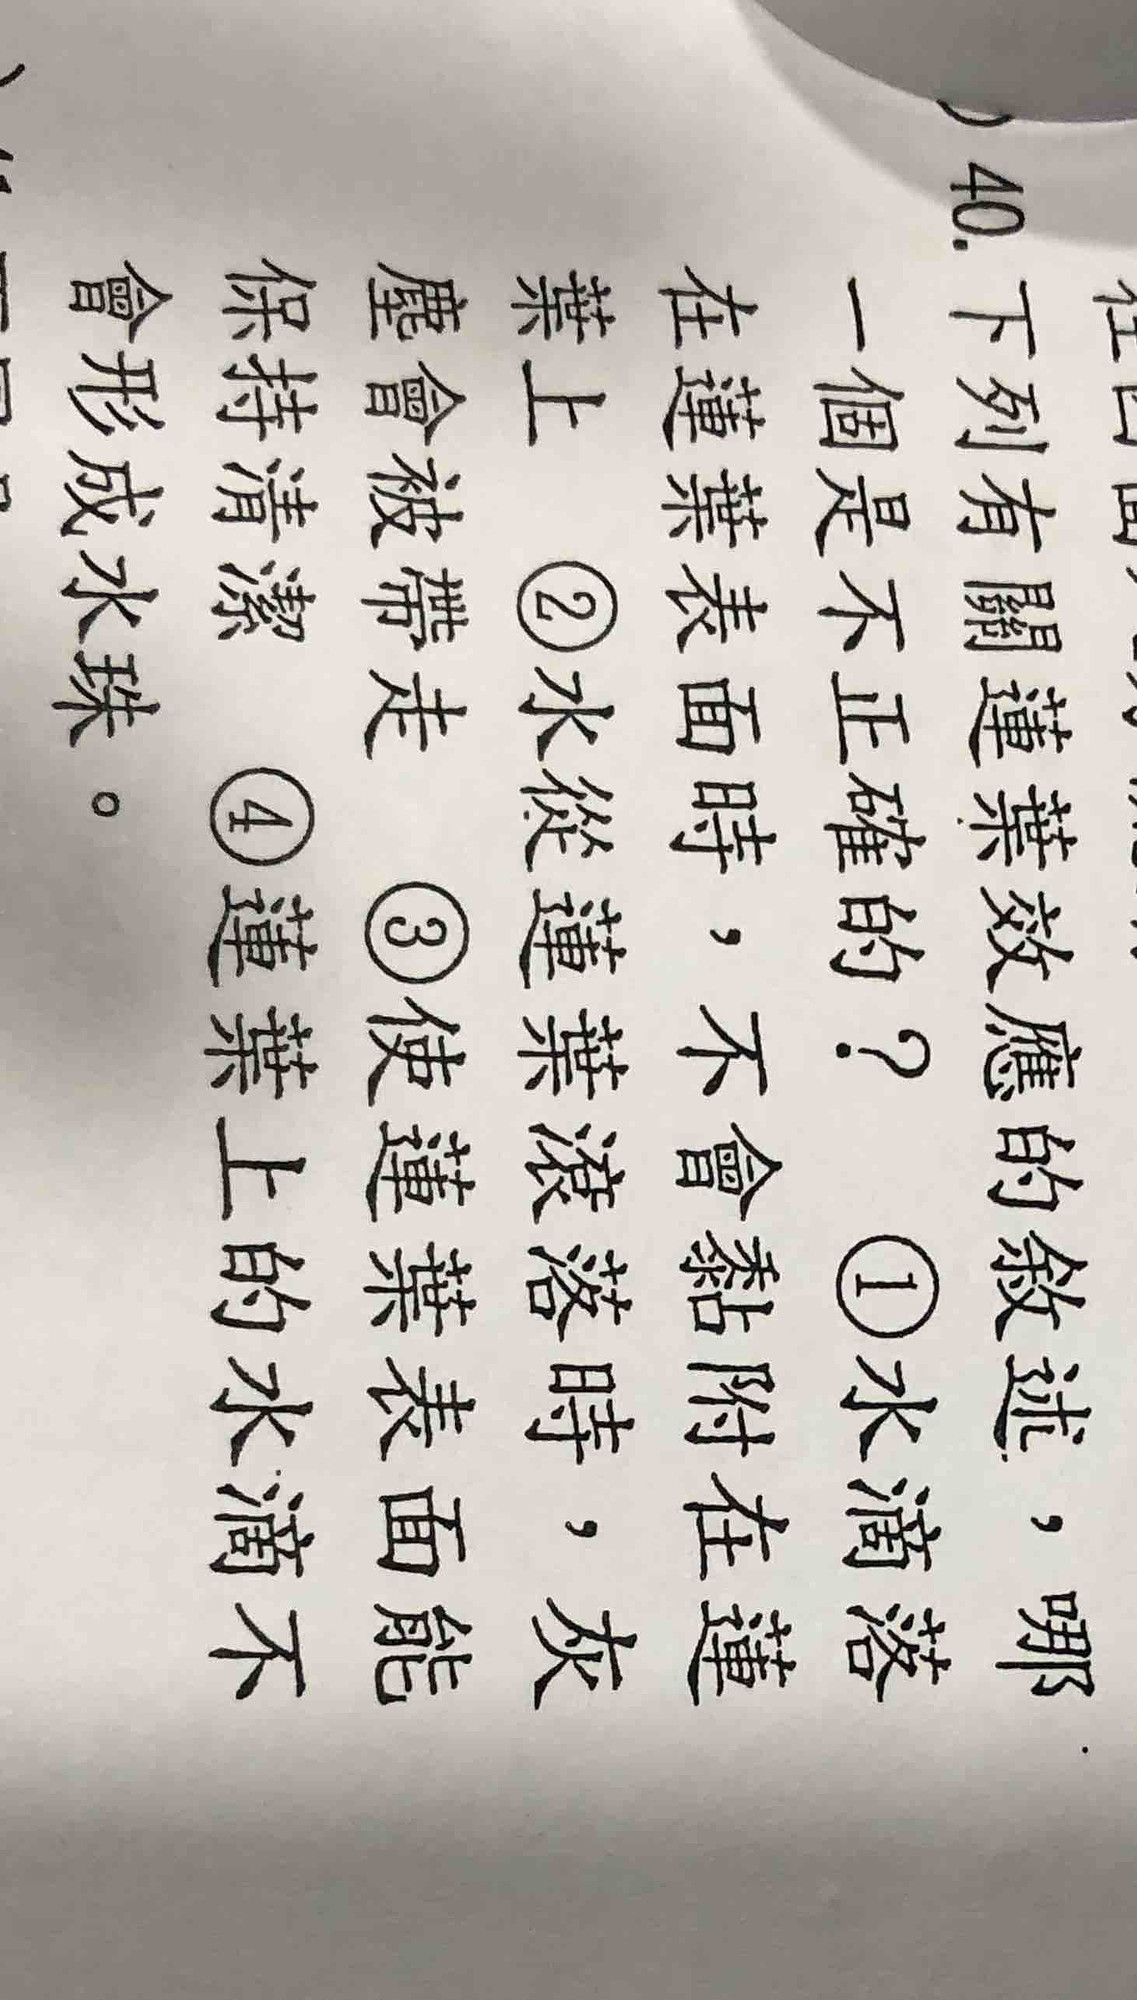 40. 下列有關蓮葉效應的敘述，哪
一個是不正確的？ ①水滴落
在蓮葉表面時，不會黏附在蓮
葉上 ②水從蓮葉滾落時，灰
塵會被帶走 ③使蓮葉表面能
保持清潔 ④蓮葉上的水滴不
會形成水珠。